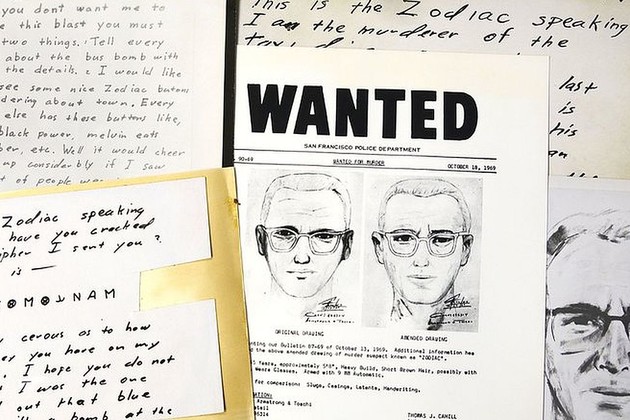 you dont want me to
e this blast you must
two things. 1 Tell every
about the bus bomb with
the details. 2 I would like
see some nice Zodiac butons
dering about town. Every
else has these buttons like,
black power, melvin eats
ber, etc. Well it would cheer
up considerbly if I saw
t of people
This is the Zodiac speaking
I am the murderer of the
last
is
his
an
Zodiac speaking
have you cracked
ipher I sent you?
is —
M NAM
cerous as to how
ey you have on my
I hope you do not
I was the one
out that blue
a bomb at the
WANTED
SAN FRANCISCO POLICE DEPARTMENT
90-69 WANTED FOR MURDER OCTOBER 18, 1969
ORIGINAL DRAWING AMENDED DRAWING
nting our Bulletin 87-69 of October 13, 1969. Additional information has
d the above amended drawing of murder suspect known as "ZODIAC".
Years, approximately 5'8", Heavy Build, Short Brown Hair, possibly with
Wears Glasses. Armed with 9 MM Automatic.
for comparison: Slugs, Casings, Latents, Handwriting.
Armstrong & Toschi
THOMAS J. CAHILL